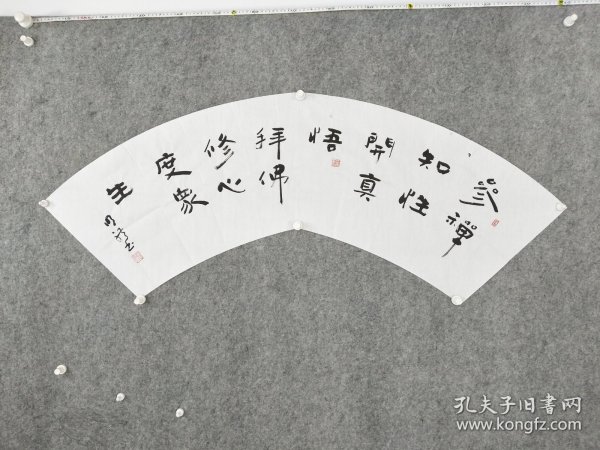 參禪
知性
開真
悟
拜佛
修心
度衆
生
孔夫子旧書网
www.kongfz.com